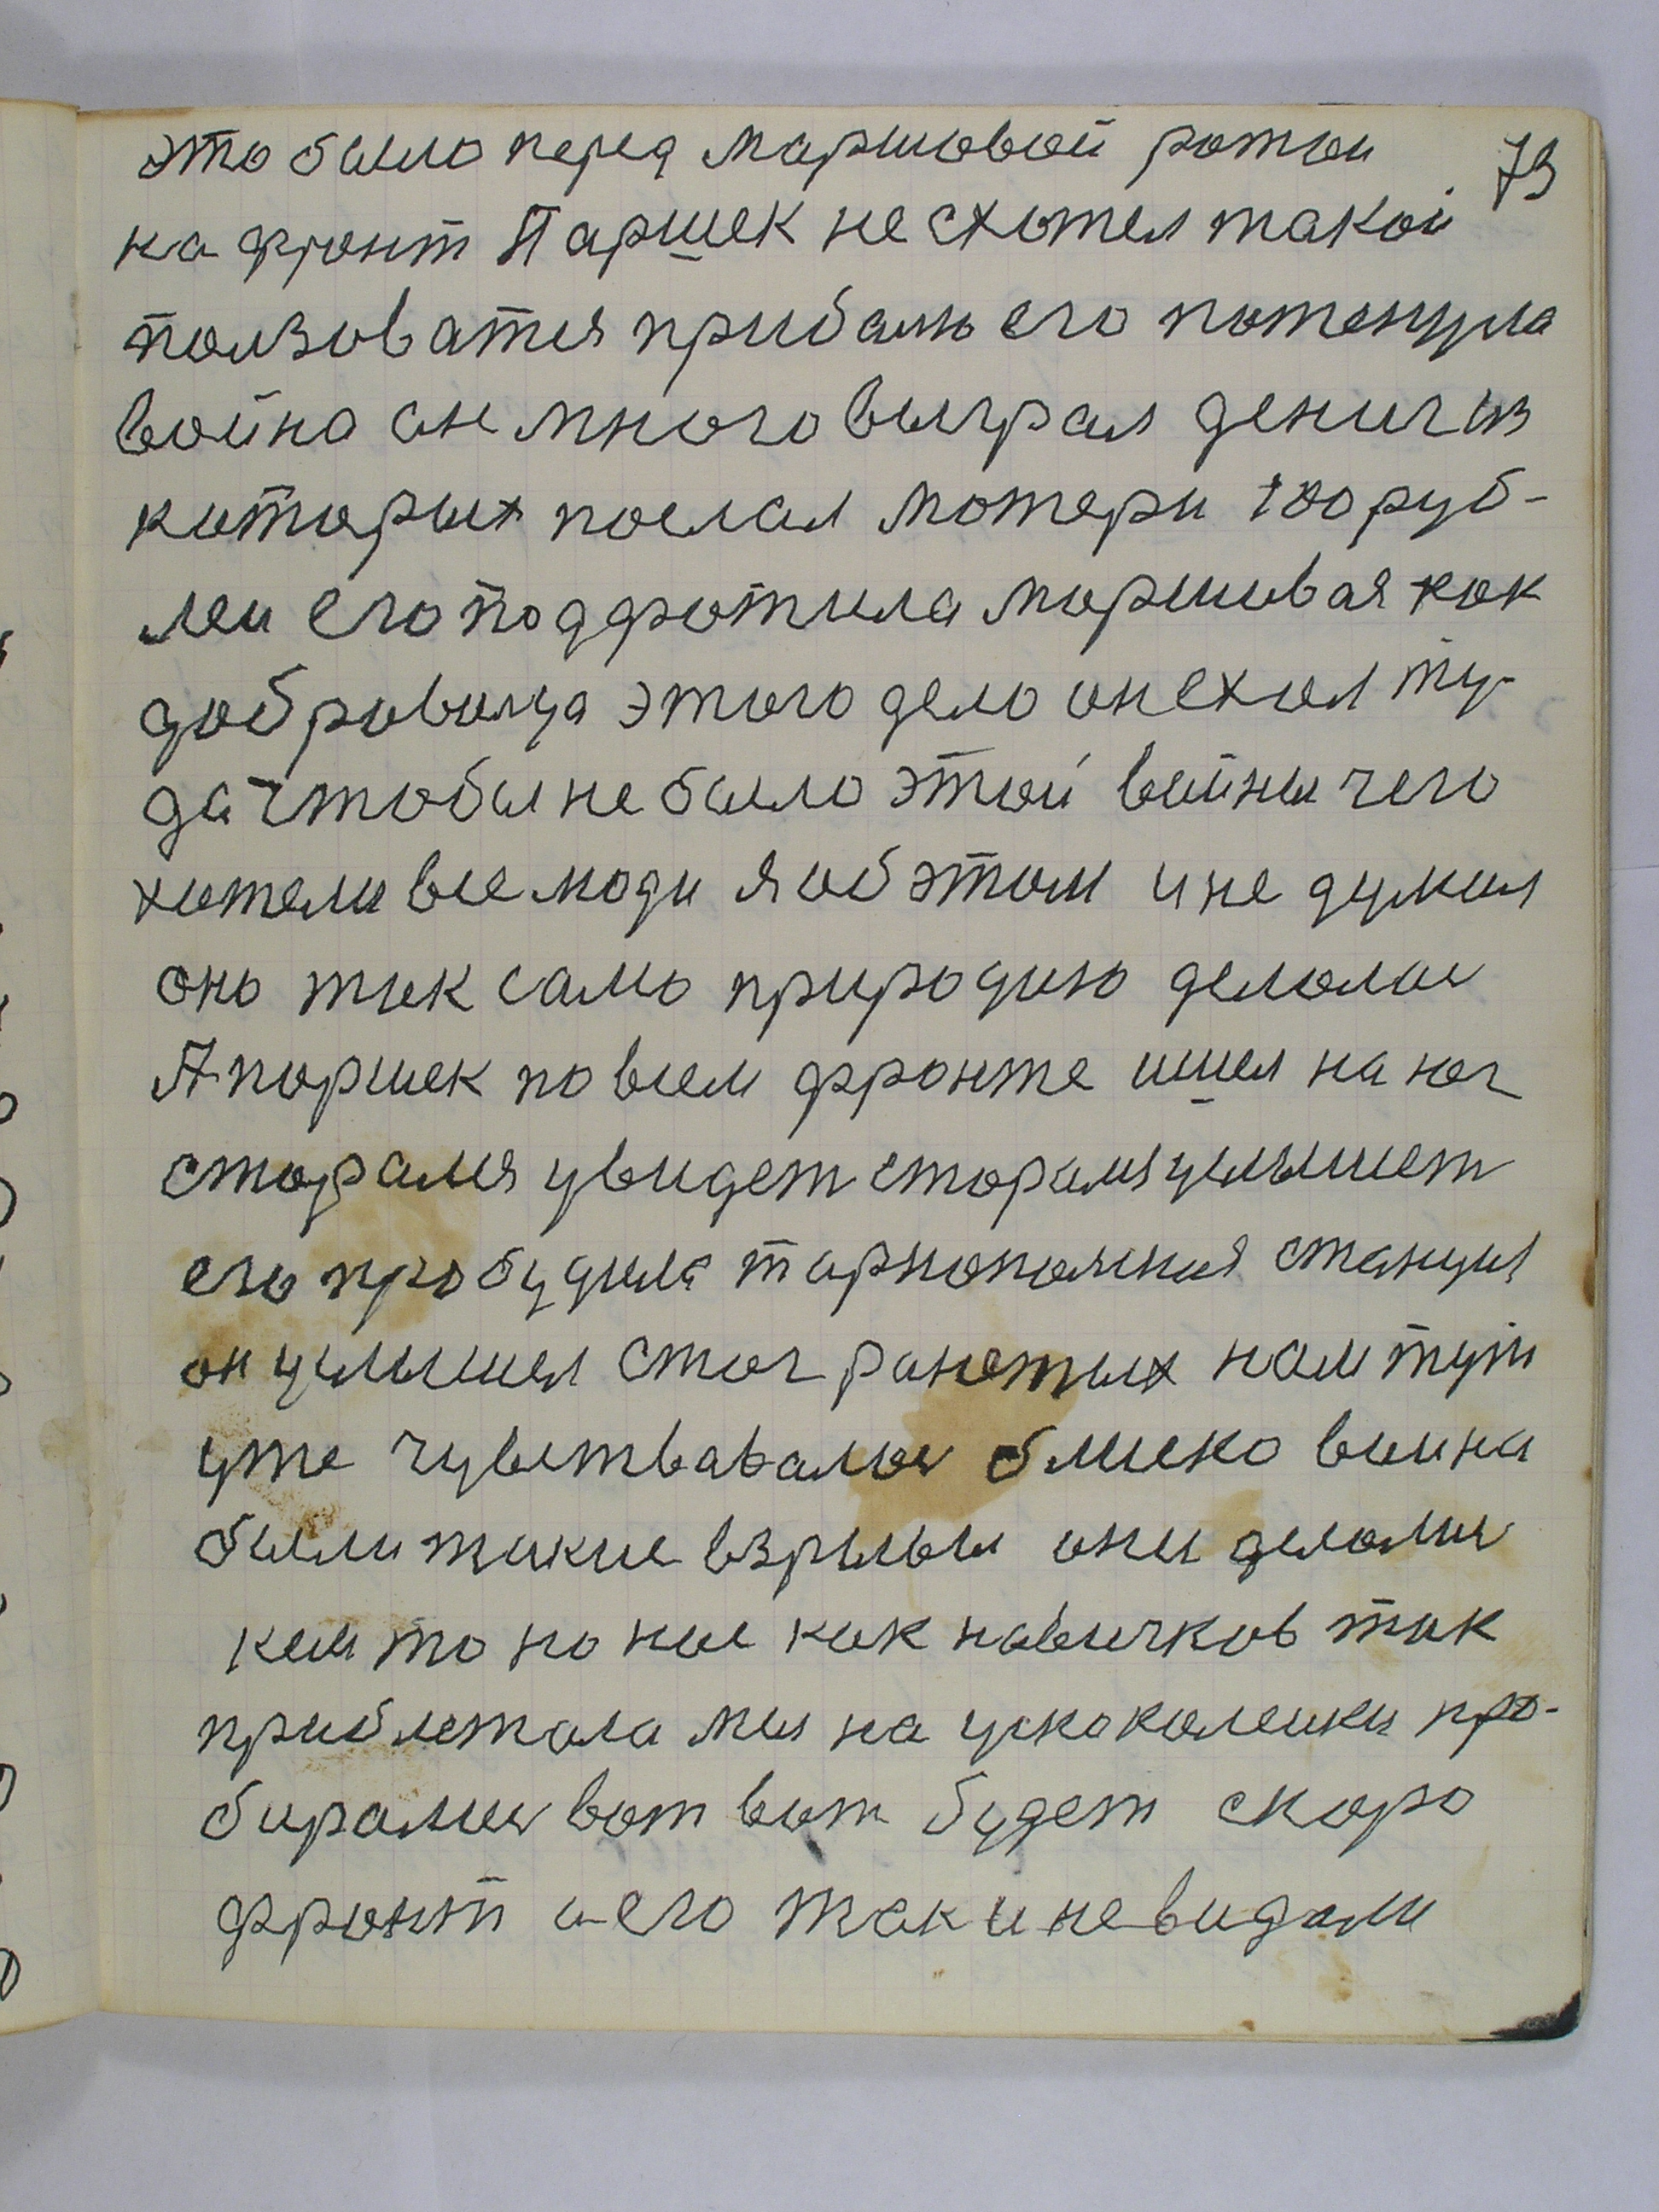 это было перед маршовой ротои 73
на фронт Паршек не схотел такой
ползоватся прибалю его потенула
война он много выграл дениг из
которых послал матери 100 руб-
леи его подфротила маршовая как
доброволца этого дело он ехал ту-
да чтобы не было этой войны чего
хотели все люди я об этом и не думал
оно так само природию делолос
А паршек по всем фронте ишел на юг
старался увидет старался услышет
его пробудила тарнополская станцыя
он услышел стог ранетых нам тут
уже чувствавалос близко вина
были такие взрывы они делолис
кем то но нас как новичков так
приблетала мы на ускоколеики про-
биралис вот вот будет скоро
фронт и его так и не видали